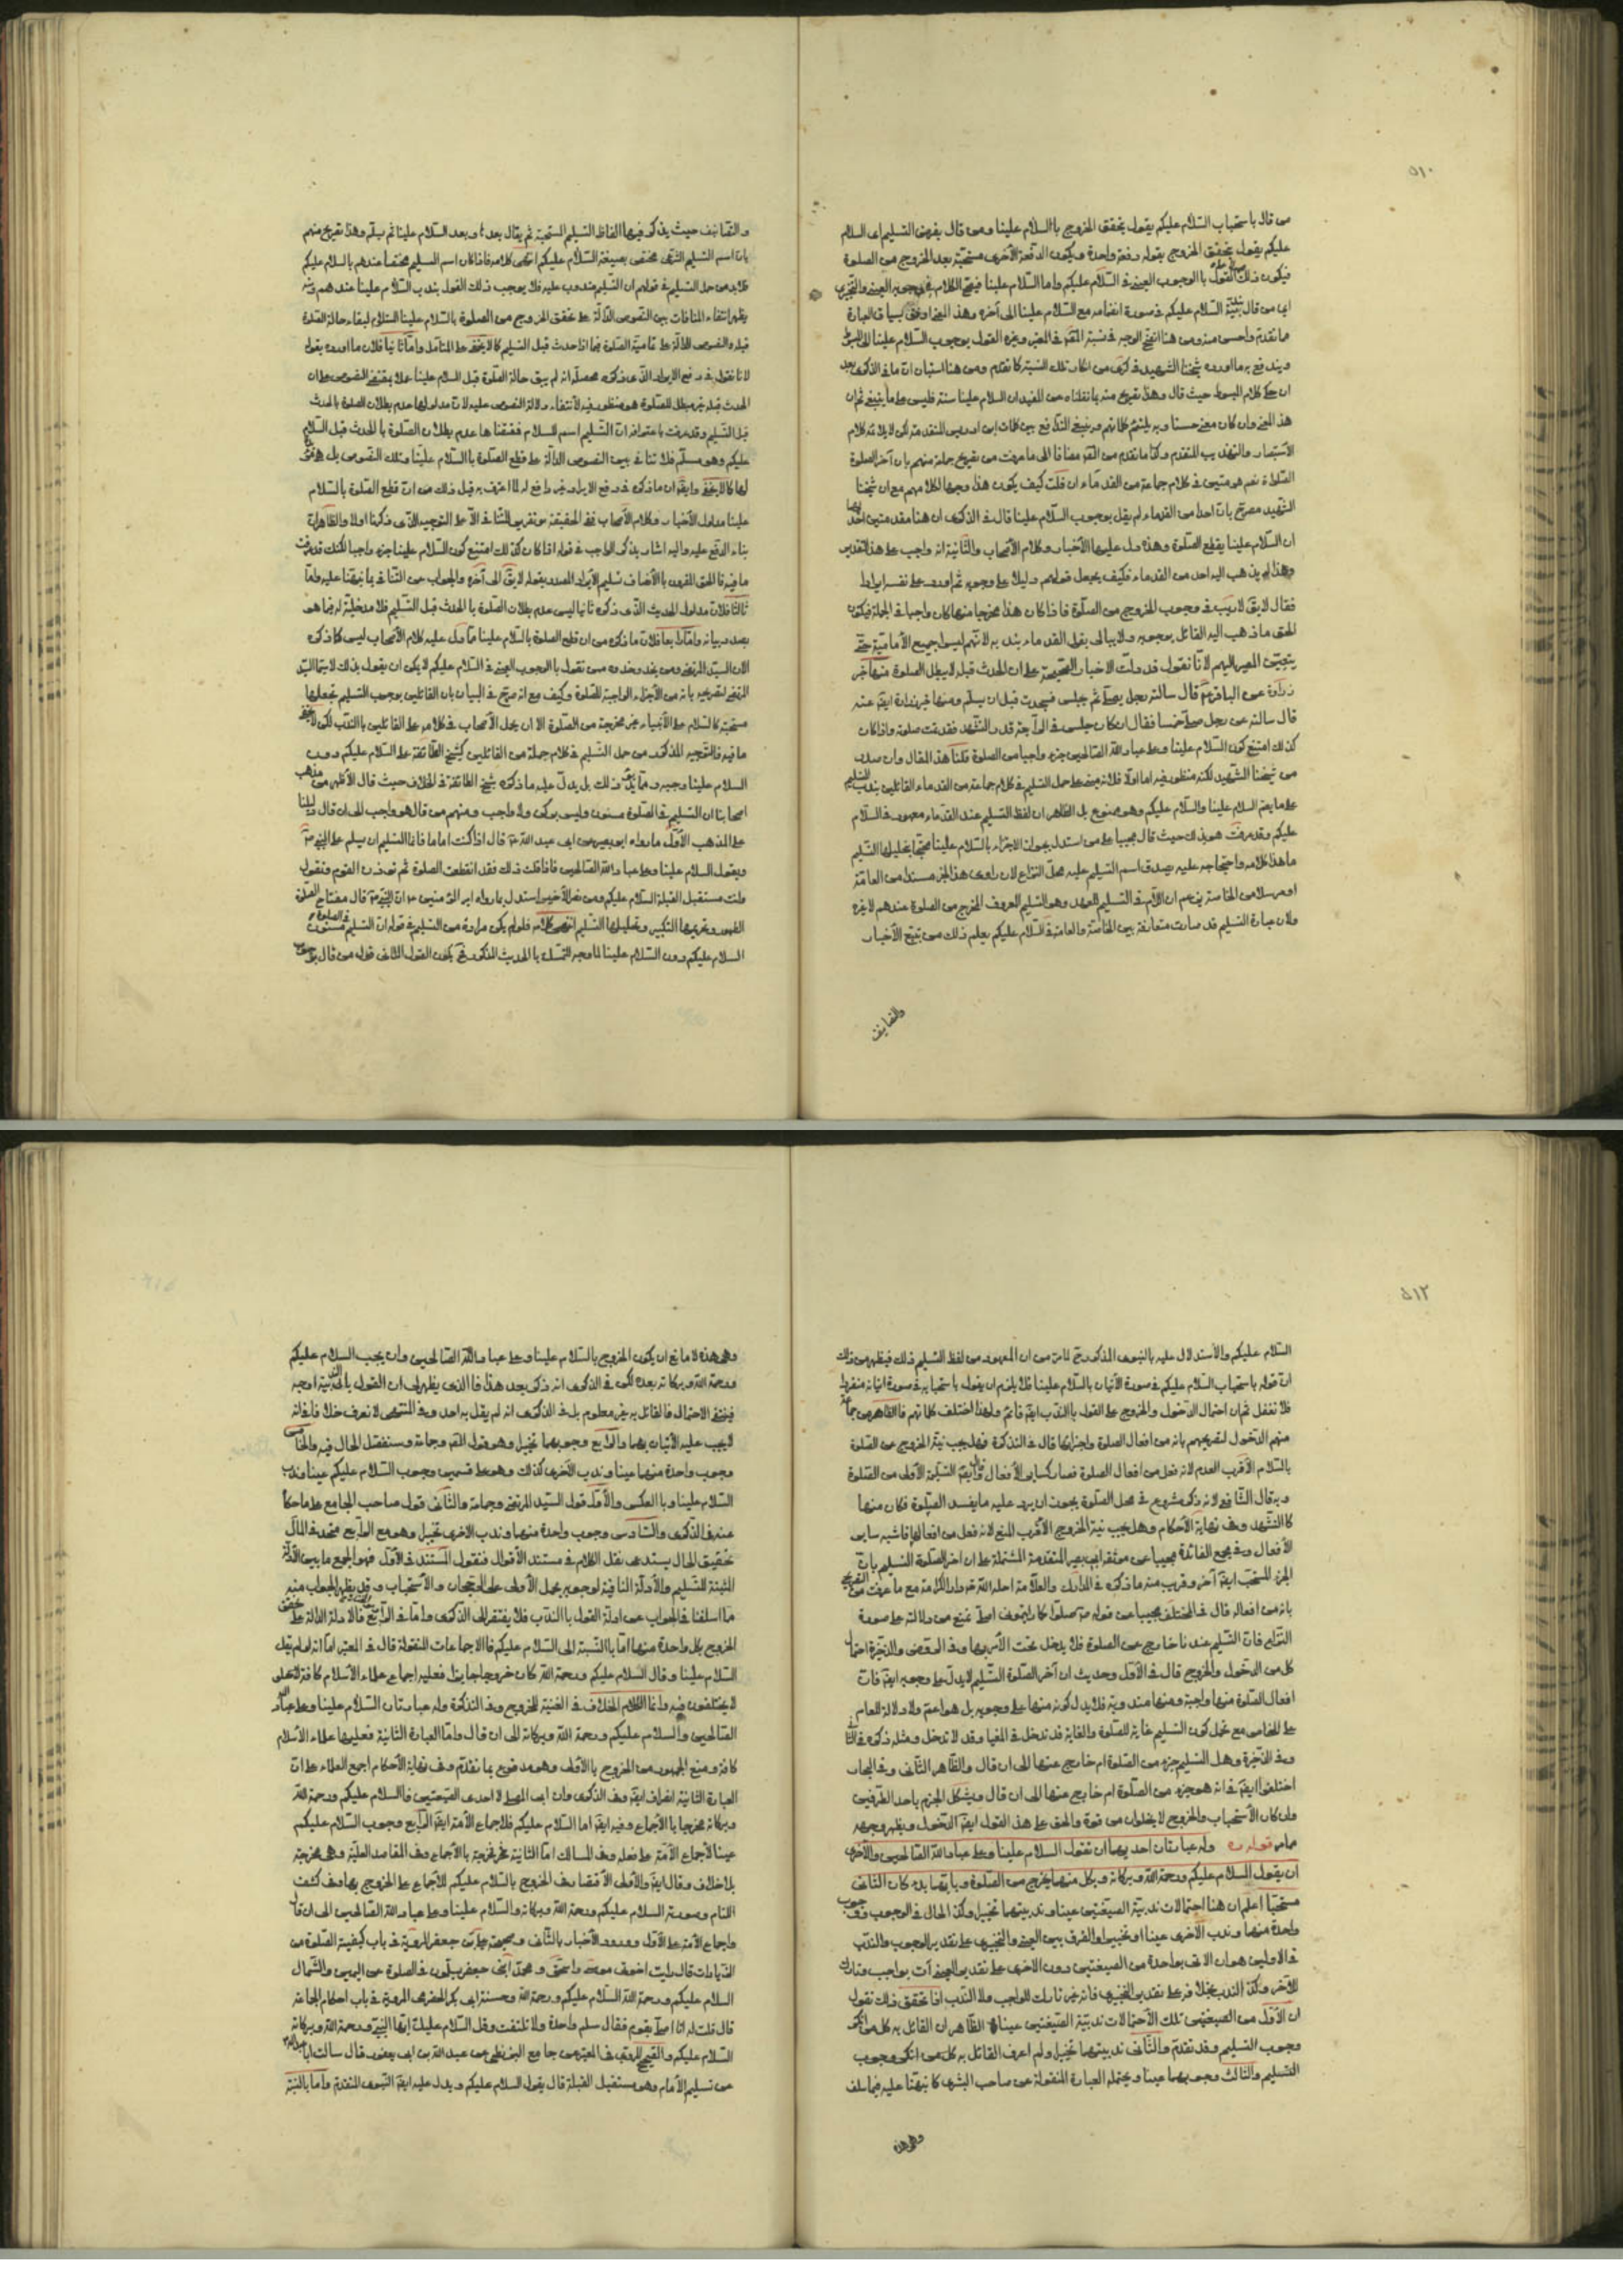 ٥١٠
من قال باستحباب السلام عليكم يقول بتحقق الخروج بالسلام علينا ومن قال بفرض التسليم اى السلام
عليكم يقول بتحقق الخروج بقوله دفعة واحدة ويكون الدفعة الأخرى مستحبة بعد الخروج من الصلوة
فيكون ذلك القول بالوجوب العينى فى السلام عليكم واما السلام علينا فيقع الكلام فى وجوبه العينى والتخييرى
اى من قال السلام عليكم فى صورة انضمامه مع السلام علينا الى آخره وهذا المعنى اوفق بسياق العبارة
ما تقدم واحسن منه ومن هنا اتضح الوجه فى نسبة المحقق فى المعتبر وغيره القول بوجوب السلام علينا الى
ويندفع به ما اورده شيخنا الشهيد فى كرى من انكار تلك النسبة كما تقدم ومن هنا استبان ان ما فى الذكرى بعد
ان حكى كلام المبسوط حيث قال وهذا تصريح منه بما نقلناه عن المفيد ان السلام علينا سنة فليس على ما ينبغى ثم ان
هذا المعنى وان كان معنى حسنا وبه يلتئم كلماتهم ويرتفع التدافع بين كلمات ابن ادريس المتقدمة لكن لا يلائمه كلام
الأستبصار والتهذيب المتقدم وكذا ما تقدم من المقنعة مضافا الى ما عرفت من تصريح جماعة منهم بان آخر الصلوة
الصلاة نعم هو متبين فى كلام جماعة من القدماء ان قلت كيف يكون هذا وجها لكلامهم مع ان شيخنا
الشهيد مصرح بان احدا من القدماء لم يقل بوجوب السلام علينا قال فى الذكرى ان هنا مقدمتين احدهما
ان السلام علينا يقطع الصلوة وهذه دل عليها الأخبار وكلام الأصحاب والثانية انه واجب على هذا التقدير
وهذا لم يذهب اليه احد من القدماء فكيف يجعل قولهم دليلا على وجوبه ثم اورد على نفسه ايرادا
فقال لا يقال لا ريب فى وجوب الخروج من الصلوة فاذا كان هذا مخرجا منها كان واجبا فى الجملة فيكون
الحق ما ذهب اليه القائل بوجوبه ولا يبالى بقول القدماء بندبه لانهم ليسوا جميع الأمامية حتى
يتعين المصير اليهم لأنا نقول قد دلت الأخبار الصحيحة على ان الحدث قبله لا يبطل الصلوة منها خبر
زرارة عن الباقر ع قال سالته رجل يصلى ثم جلس فيحدث قبل ان يسلم ومنها خبر زرارة ايضا عنه
قال سالته عن رجل صلى خمسا فقال ان كان جلس فى الرابعة قدر التشهد فقد تمت صلوته واذا كان
كذلك امتنع كون السلام علينا وعلى عباد الله الصالحين جزء واجبا من الصلوة قلنا هذا المقال وان صدر
من شيخنا الشهيد لكنه منظور فيه اما اولا فلانه مبنى على حمل التسليم فى كلام جماعة من القدماء القائلين بندب التسليم
على ما يعم السلام علينا والسلام عليكم وهو ممنوع بل الظاهر ان لفظ التسليم عند القدماء معهود فى السلام
عليكم وقد عرفت هو بذلك حيث قال مجيبا على من استدل بجواز الاجتزاء بالسلام علينا محتجا بتحليلها التسليم
ما هذا كلامه واحتجاجه عليه بصدق اسم التسليم عليه محل النزاع لان راوى هذا الخبر مسندا من العامة
او مرسلا من الخاصة يزعم ان اللام فى التسليم للعهد وهو التسليم المعروف المخرج من الصلوة عندهم لا غيره
ولان عبارة التسليم قد صارت متعارفة بين الخاصة والعامة فى السلام عليكم يعلم ذلك من تتبع الأخبار
والتصانيف
والتصانيف حيث يذكر فيها الفاظ التسليم المستحبة ثم يقال بعده او بعد السلام علينا ثم يسلم وهذا تصريح منهم
بان اسم التسليم الشرعى مختص بصيغة السلام عليكم انتهى كلامه فاذا كان اسم التسليم مختصا عندهم بالسلام عليكم
فلا بد من حمل التسليم فى قولهم ان التسليم مندوب عليه فلا يوجب ذلك القول بندب السلام علينا عندهم ومنه
يظهر انتفاء المنافات بين النصوص الدالة على تحقق الخروج من الصلوة بالسلام علينا السلام لبقاء حالة الصلوة
قبله والنصوص الدالة على تمامية الصلوة فيما اذا حدث قبل التسليم كما لا يخفى على المتأمل واما ثانيا فلان ما اورده بقوله
لانا نقول فى دفع الايراد الذى ذكره محصله انه لم يبق حالة الصلوة قبل السلام علينا عملا بمقتضى النصوص على ان
الحدث قبله غير مبطل للصلوة هو منظور فيه لأنتفاء دلالة النصوص عليه لان مدلولها عدم بطلان الصلوة بالحدث
قبل التسليم وقد عرفت باعترافه ان التسليم اسم للسلام فمقتضاها عدم بطلان الصلوة بالحدث قبل السلام
عليكم وهو مسلم فلا تنافى بين النصوص الدالة على قطع الصلوة بالسلام علينا وتلك النصوص بل
لها كما لا يخفى وايضا ان ما ذكره فى دفع الايراد غير دافع له لما اعترف به قبل ذلك من ان قطع الصلوة بالسلام
علينا مدلول الأخبار وكلام الأصحاب ففى الحقيقة هو تقرير للتنافى الا على التوجيه الذى ذكرنا اولا والظاهر ان
بناء الدفع عليه واليه اشار بذكر الواجب فى قوله اذا كان كذلك امتنع كون السلام علينا جزء واجبا لكنك قد عرفت
ما فيه فالحق المقرون بالأنصاف تسليم الأيراد المصدر بقوله لا يقال الى آخره والجواب عن التنافى بما نبهنا عليه واما
ثالثا فلان مدلول الحديث الذى ذكره ثانيا ليس عدم بطلان الصلوة بالحدث قبل التسليم فلا مدخلية له فيما هو
بصدد بيانه واما رابعا فلان ما ذكره من ان قطع الصلوة بالسلام علينا مما دل عليه كلام الأصحاب ليس كما ذكره
لان السيد المرتضى ومن يحذو حذوه ممن نقول بالوجوب العينى فى السلام عليكم لا يمكن ان يقول بذلك لا سيما السيد
المرتضى لتصريحه بانه من الأجزاء الواجبة للصلوة وكيف مع انه صرح فى البيان بان القائلين بوجوب التسليم تجعلها
مستحبة كالسلام على الأنبياء غير مخرجة من الصلوة الا ان يحمل الأصحاب فى كلامه على القائلين بالندب لكن لا يخفى
ما فيه فالتوجيه المذكور من حمل التسليم فى كلام جملة من القائلين كشيخ الطائفة على السلام عليكم دون
السلام علينا وجيه ومما يؤيد ذلك بل يدل عليه ما ذكره شيخ الطائفة فى الخلاف حيث قال الأظهر من مذهب
اصحابنا ان التسليم فى الصلوة مسنون وليس بركن ولا واجب ومنهم من قال هو واجب الى ان قال دليلنا
على المذهب الأول ما رواه ابو بصير عن ابى عبد الله ع قال اذا كنت اماما فانما التسليم ان يسلم على النبى ص
ويقول السلام علينا وعلى عباد الله الصالحين فاذا قلت ذلك فقد انقطعت الصلوة ثم تؤذن القوم فتقول
وانت مستقبل القبلة السلام عليكم ومن نصر الأخير استدل بما رواه امير المؤمنين ع ان النبى ص قال مفتاح الصلوة
الطهور وتحريمها التكبير وتحليلها التسليم انتهى كلامه فلو لم يكن مراده من التسليم فى قوله ان التسليم فى الصلوة مسنون
السلام عليكم دون السلام علينا لما وجه التمسك بالحديث المذكور فح يكون القول الثانى قول من قال بوجوب
٥١٢
السلام عليكم والأستدلال عليه بالنبوى المذكور فح لما مر من ان المعهود من لفظ التسليم ذلك فيظهر من ذلك
ان قوله باستحباب السلام عليكم فى صورة الأتيان بالسلام علينا فلا يلزم ان يقول باستحبابه فى صورة اتيانه منفردا
فلا تغفل ثم ان احتمال الدخول والخروج على القول بالندب ايضا قائم ولهذا اختلف كلماتهم فالظاهر من جماعة
منهم الدخول لتصريحهم بانه من افعال الصلوة واجزائها قال فى التذكرة فهل يجب نية الخروج عن الصلوة
بالسلام الأقرب العدم لانه فعل من افعال الصلوة فصار كسائر الأفعال وقال ايضا التسليمة الأولى من الصلوة
وبه قال الشافعى لانه ذكر مشروع فى محل الصلوة يجوز ان يرد عليه ما يفسد الصلوة فكان منها
كالتشهد وفى نهاية الأحكام وهل يجب نية الخروج الأقرب المنع لانه فعل من افعالها فاشبه سائر
الأفعال وفى مجمع الفائدة مجيبا عن موثقة ابى بصير المتقدمة المشتملة على ان آخر الصلوة التسليم بان
الجزء المستحب ايضا آخر وقريب منه ما ذكره فى المدارك والعلامة احله الله تع دار الكرامة مع ما عرفت من التصريح
بانه من افعاله قال فى المختلف مجيبا عن قوله ص صلوا كما رايتمونى اصلى نمنع من دلالته على صورة
النزاع فان التسليم عندنا خارج عن الصلوة فلا يدخل تحت الأمر بها وفى الروض والذخيرة احتمال
كل من الدخول والخروج قال فى الأول وحديث ان آخر الصلوة التسليم لا يدل على وجوبه ايضا فان
افعال الصلوة منها واجبة ومنها مندوبة فلا يدل كونه منها على وجوبه بل هو اعم ولا دلالة للعام
على الخاص مع تحمل كون التسليم غاية للصلوة والغاية قد تدخل فى المغيا وقد لا تدخل ومثله ذكره فى الثانى
وفى الذخيرة وهل التسليم جزء من الصلوة ام خارج عنها الى ان قال والظاهر الثانى وفى البحار
اختلفوا ايضا فى انه هو جزء من الصلوة ام خارج منها الى ان قال ويشكل الجزم باحد الطرفين
وان كان الأستحباب والخروج لا يخلوان من قوة والحق على هذا القول ايضا الدخول ويظهر وجهه
مما مر قوله ره وله عبارتان احديهما ان تقول السلام علينا وعلى عباد الله الصالحين والأخرى
ان يقول السلام عليكم ورحمة الله وبركاته وبكل منهما يخرج من الصلوة وبايهما بدء كان الثانى
مستحبا اعلم ان هنا احتمالات ندبية الصيغتين عينا وندبيتهما تخييرا وكذا الحال فى الوجوب ووجوب
واحدة منهما وندب الأخرى عينا او تخييرا والفرق بين العينى والتخييرى على تقدير الوجوب والندب
فى الاولين هو ان الآتى بواحدة من الصيغتين دون الاخرى على تقدير العينى آت بواجب وتارك
للآخر وكذا الندب بخلافه على تقدير التخييرى فانه غير تارك للواجب ولا الندب اذا تحقق ذلك نقول
ان الأول من الصيغتين تلك الأحتمالات ندبية الصيغتين عينا والظاهر ان القائل به كل من انكر
وجوب التسليم وقد تقدم والثانى ندبيتهما تخييرا ولم اعرف القائل به كل من انكر وجوب
التسليم والثالث وجوبهما عينا ويحتمله العبارة المنقولة عن صاحب البشرى كما نبهنا عليه فيما سلف
وهى هذه
وهى هذه لا مانع ان يكون الخروج بالسلام علينا وعلى عباد الله الصالحين وان يجب السلام عليكم
ورحمة الله وبركاته بعده لكن فى الذكرى انه ذكر بعد هذا فالذى يظهر لى ان القول بالندبية اوجه
فينتفى الاحتمال فالقائل به غير معلوم بل فى الذكرى انه لم يقل به احد وفى المنتهى لا نعرف خلافا فى انه
لا يجب عليه الأتيان بهما والرابع وجوبهما تخييرا وهو قول المحقق وجماعة وسنفصل الحال فيه والخامس
وجوب واحدة منهما عينا وندب الأخرى كذلك وهو على قسمين وجوب السلام عليكم عينا وندب
السلام علينا وبالعكس والأول قول السيد المرتضى وجماعة والثانى قول صاحب الجامع على ما حكاه
عنه فى الذكرى والسادس وجوب واحدة منهما وندب الاخرى تخييرا وهو مع الرابع متحد فى المآل
تحقيق الحال يستدعى نقل الكلام فى مستند الأقوال فنقول المستند فى الأول فهو الجمع ما بين الأدلة
المثبتة للتسليم والأدلة النافية لوجوبه بحمل الأولى على الرجحان والأستحباب وقد يظهر الجواب منه
مما اسلفنا فى الجواب عن ادلة القول بالندب فلا يفتقر الى الذكرى واما فى الرابع فالأدلة الدالة على تحقق
الخروج بكل واحدة منهما اما بالنسبة الى السلام عليكم فالاجماعات المنقولة قال فى المعتبر اما انه لو لم يقل
السلام علينا وقال السلام عليكم ورحمة الله كان خروجا جايزا فعليه اجماع علماء الأسلام كافة لانهم
لا يختلفون فيه وانما الكلام الخلاف فى الغنية للخروج وفى التذكرة وله عبارتان السلام علينا وعلى عباد الله
الصالحين والسلام عليكم ورحمة الله وبركاته الى ان قال واما العبارة الثانية فعليها علماء الأسلام
كافة ومنع الجمهور من الخروج بالأولى وهو مدفوع بما تقدم وفى نهاية الأحكام اجمع العلماء على ان
العبارة الثانية انصراف ايضا وفى الذكرى وان ابى المصلى الا احدى الصيغتين فالسلام عليكم ورحمة الله
وبركاته مخرجا بالأجماع وفيه ايضا اما السلام عليكم فلاجماع الأمة ايضا الرابع وجوب السلام عليكم
عينا لأجماع الأمة على فعله وفى المسالك اما الثانية فمخرجة بالأجماع وفى المقاصد العلية وهى مخرجة
بلا خلاف وقال ايضا والأولى الأقتصار فى الخروج بالسلام عليكم للأجماع على الخروج بها وفى كشف
اللثام وصورته السلام عليكم ورحمة الله وبركاته والسلام علينا وعلى عباد الله الصالحين الى ان قال
واجماع الأمة على الأول وورود الأخبار بالثانى وصحيحة على بن جعفر المروية فى باب كيفية الصلوة من
الزيادات قال رايت اخوتى موسى واسحق ومحمد ابنى جعفر يسلمون فى الصلوة عن اليمين والشمال
السلام عليكم ورحمة الله السلام عليكم ورحمة الله وحسنة ابى بكر الحضرمى المروية فى باب احكام الجماعة
قال قلت له انا اصلى بقوم فقال سلم واحدة ولا تلتفت وقل السلام عليك ايها النبى ورحمة الله وبركاته
السلام عليكم والصحيح المروى فى المعتبر من جامع البزنطى عن عبد الله بن ابى يعفور قال سالت ابا عبد الله ع
عن تسليم الأمام وهو مستقبل القبلة قال يقول السلام عليكم ويدل عليه ايضا النبوى المتقدم واما بالنسبة